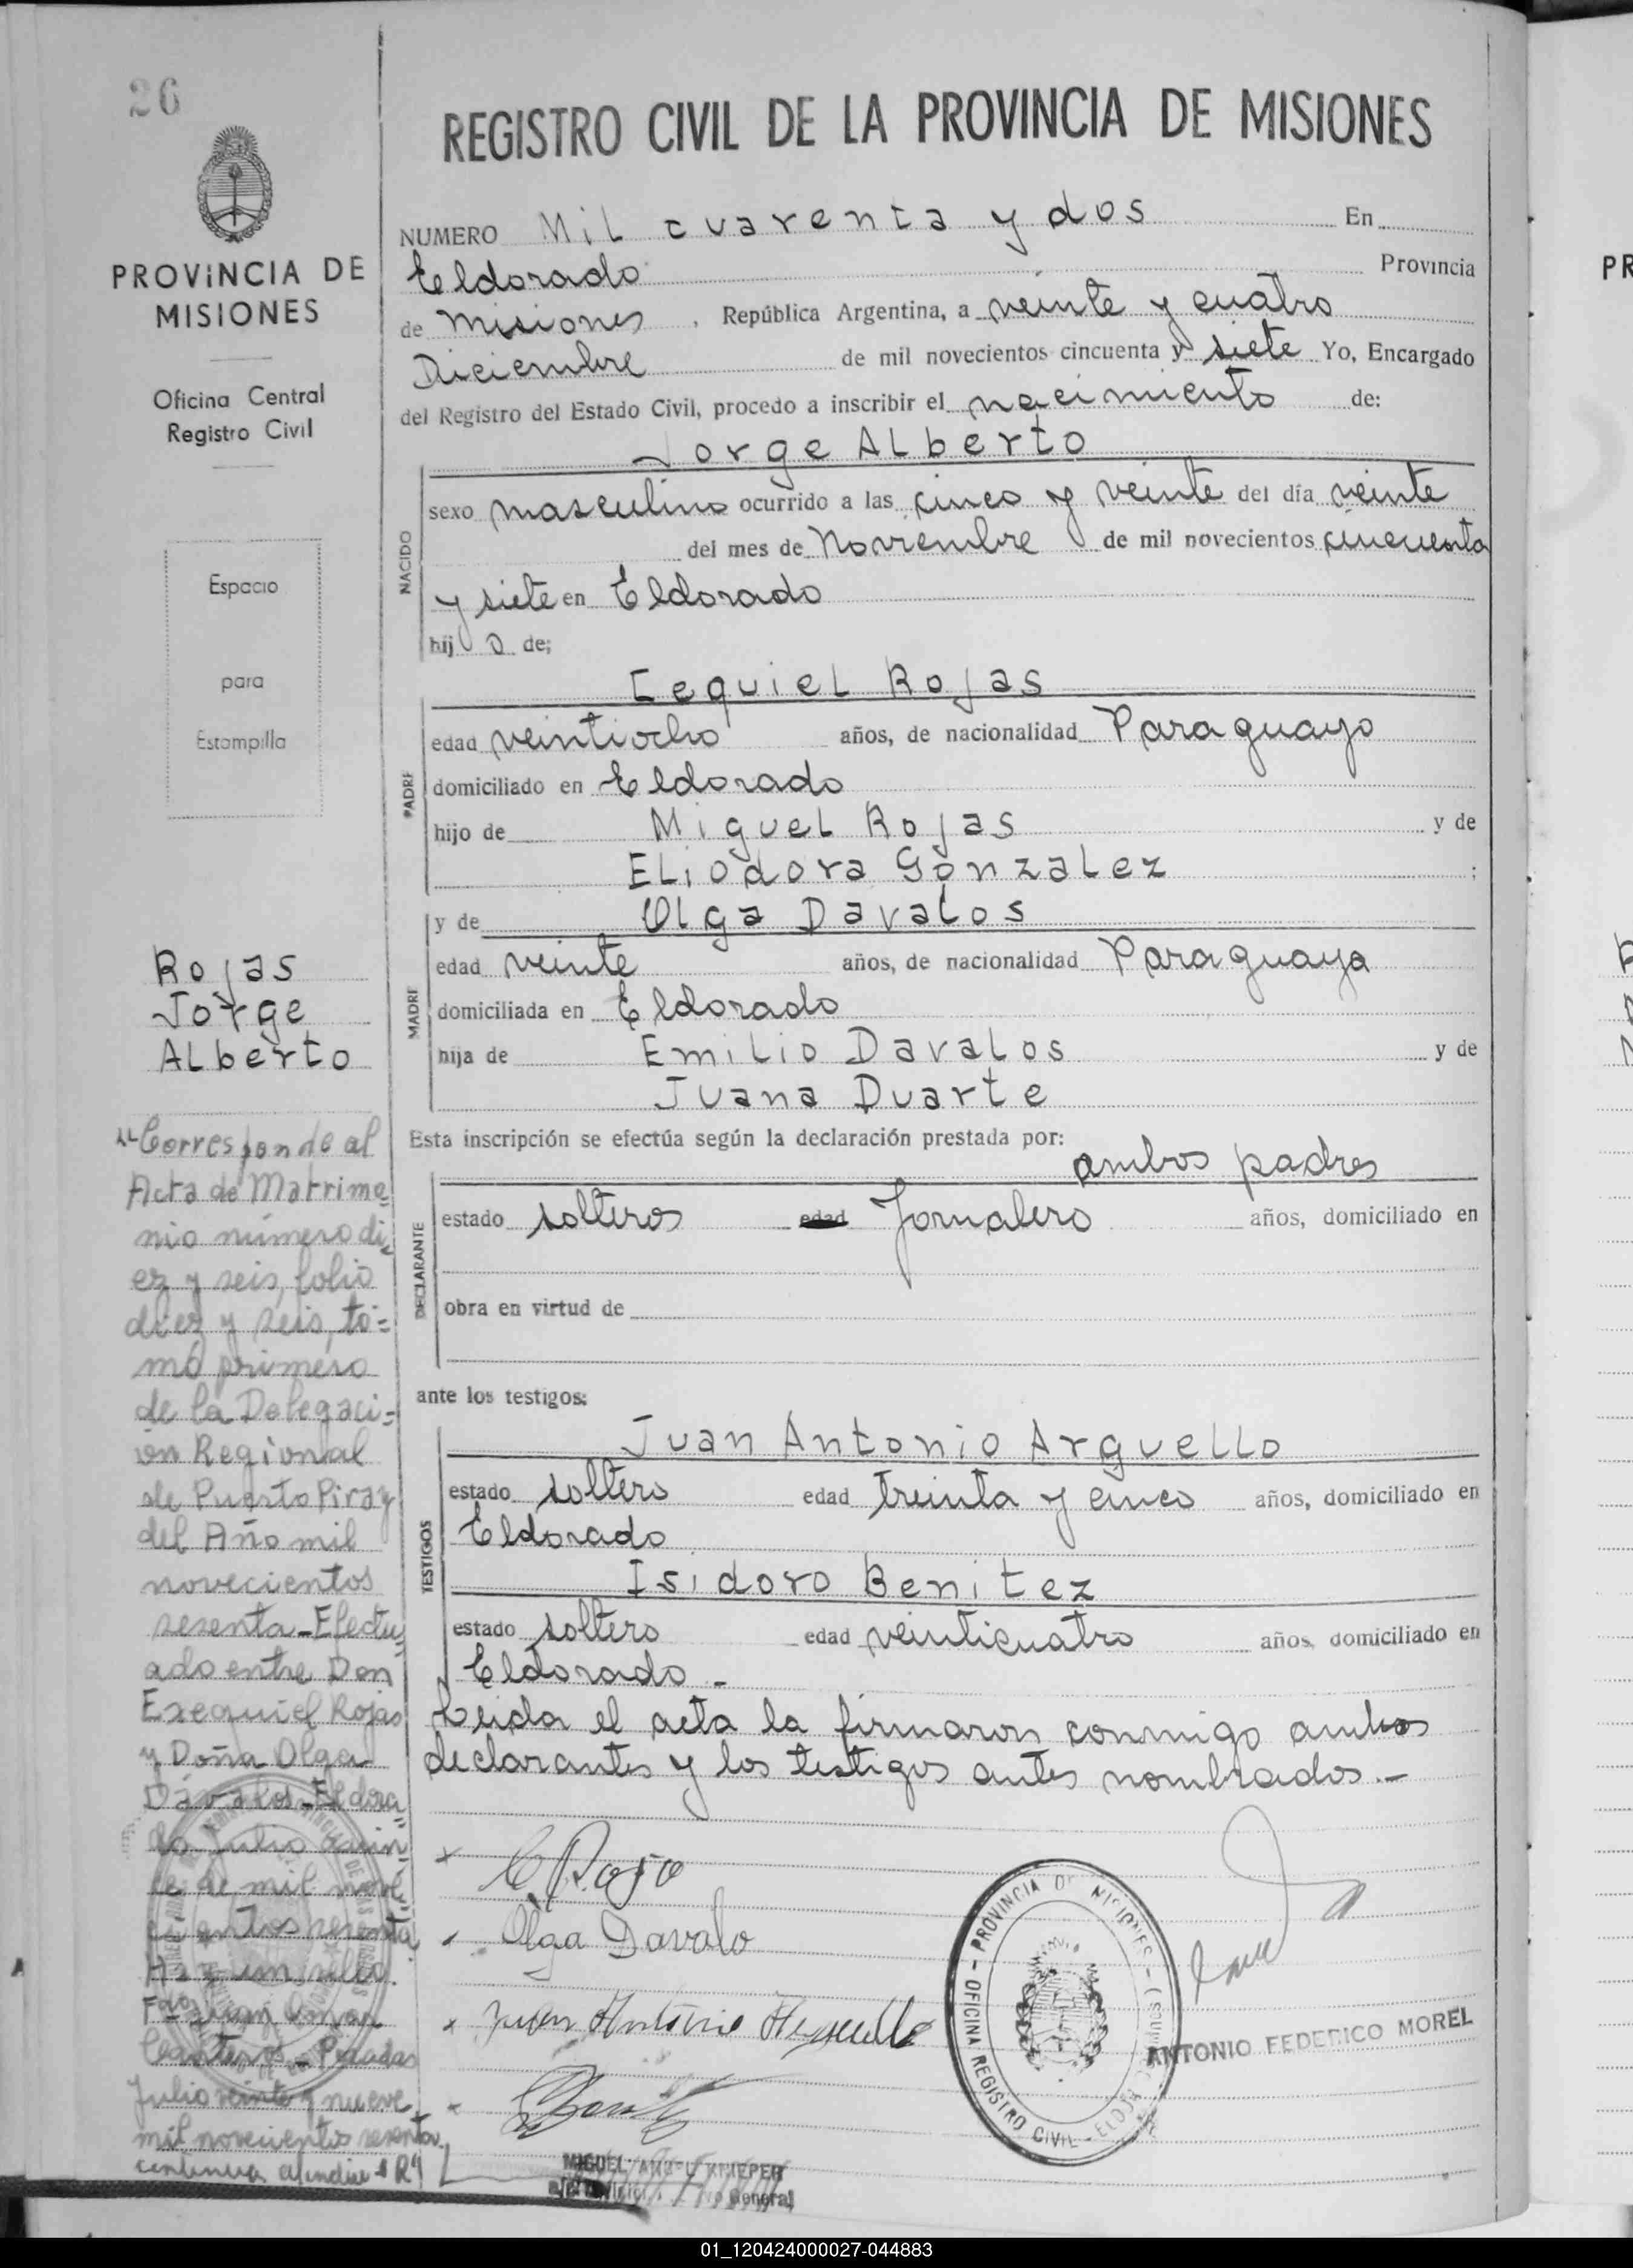 26
REGISTRO CIVIL DE LA PROVINCIA DE MISIONES
PROVINCIA DE
MISIONES
Oficina Central
Registro Civil
Espacio
para
Estampilla
NUMERO Mil cuarenta y dos En
Eldorado Provincia
de Misiones, República Argentina, a veinte y cuatro
Diciembre de mil novecientos cincuenta y siete Yo, Encargado
del Registro del Estado Civil, procedo a inscribir el nacimiento de:
Jorge Alberto
NACIDO
sexo masculino ocurrido a las cinco y veinte del día veinte
del mes de Noviembre de mil novecientos cincuenta
y siete en Eldorado
hijo de;
Eequiel Rojas
PADRE
edad veintiocho años, de nacionalidad Paraguayo
domiciliado en Eldorado
hijo de Miguel Rojas y de
Eliodora Gonzalez ;
y de Olga Davalos
MADRE
edad veinte años, de nacionalidad Paraguaya
domiciliada en Eldorado
hija de Emilio Davalos y de
Juana Duarte
Esta inscripción se efectúa según la declaración prestada por:
ambos padres
DECLARANTE
estado solteros edad Jornalero años, domiciliado en
obra en virtud de
ante los testigos:
Juan Antonio Arguello
TESTIGOS
estado soltero edad treinta y cinco años, domiciliado en
Eldorado
Isidoro Benitez
estado soltero edad veinticuatro años, domiciliado en
Eldorado -
Leida el acta la firmaron conmigo ambos
declarantes y los testigos antes nombrados.-
Rojas
Jorge
Alberto
Corresponde al
Acta de Matrimo
nio número di
ez y seis, folio
diez y seis, to=
mo primero
de la Delegaci=
ón Regional
de Puerto Piray
del Año mil
novecientos
sesenta-Efectu
ado entre Don
Exequiel Rojas
y Doña Olga
Dávalos-Eldora
do Julio quin
ce de mil nove
cientos sesenta
Hay un sello.
Fdo Juan
Canteros - Posadas
Julio veinte y nueve
mil novecientos sesenta
continua al indice "R"
E Roja
Olga Davalo
Juan Antonio Arguello
OFICINA REGISTRO CIVIL - PROVINCIA DE MISIONES -
ANTONIO FEDERICO MOREL
MIGUEL ANGEL KNIEPER
General
PR
01_120424000027-044883